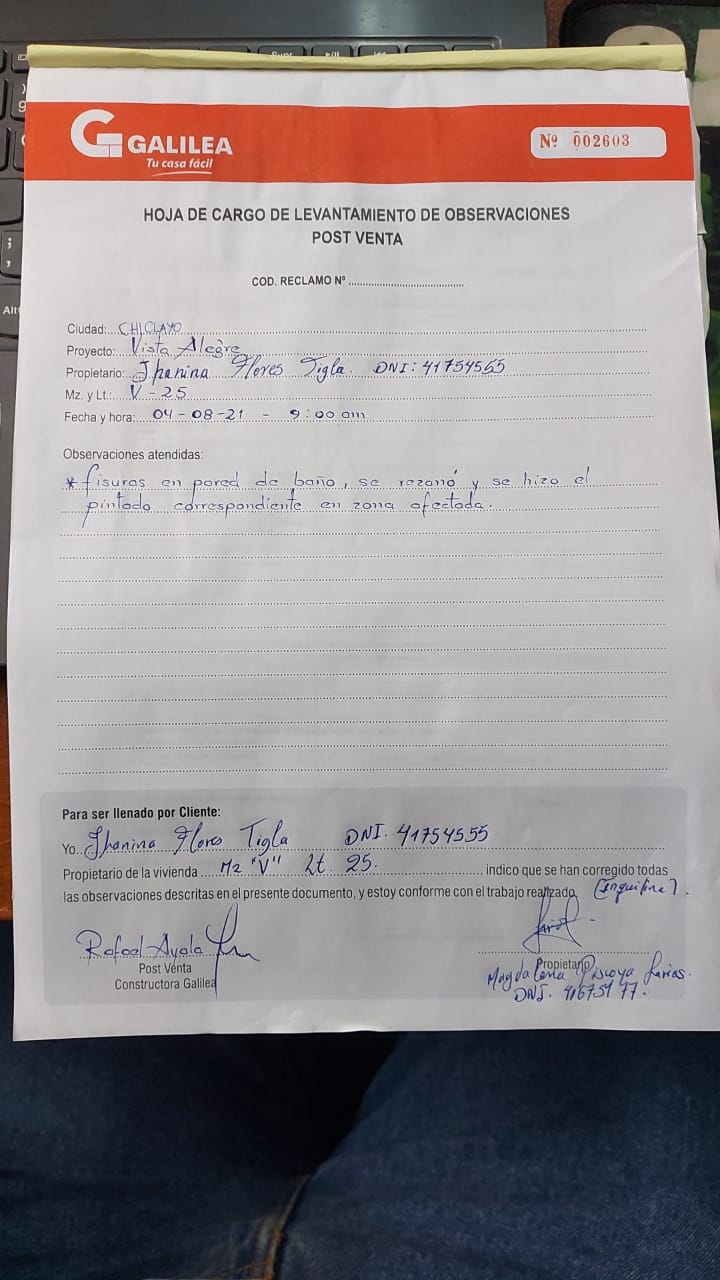 GALILEA
Tu casa fácil
Nº 002603
HOJA DE CARGO DE LEVANTAMIENTO DE OBSERVACIONES
POST VENTA
COD. RECLAMO Nº
Ciudad: CHICLAYO
Proyecto: Vista Alegre
Propietario: Jhanina Flores Tigla DNI: 41754555
Mz. y Lt.: V - 25
Fecha y hora: 04-08-21 - 9:00 am
Observaciones atendidas:
* fisuras en pared de baño, se rezanó y se hizo el
pintado correspondiente en zona afectada.
Para ser llenado por Cliente:
Yo Jhanina Flores Tigla DNI. 41754555
Propietario de la vivienda Mz "V" Lt. 25. indico que se han corregido todas
las observaciones descritas en el presente documento, y estoy conforme con el trabajo realizado. (Inquilina).
Rafael Ayala
Post Venta
Constructora Galilea
Propietario
Magdalena Piscoya Farias.
DNI.